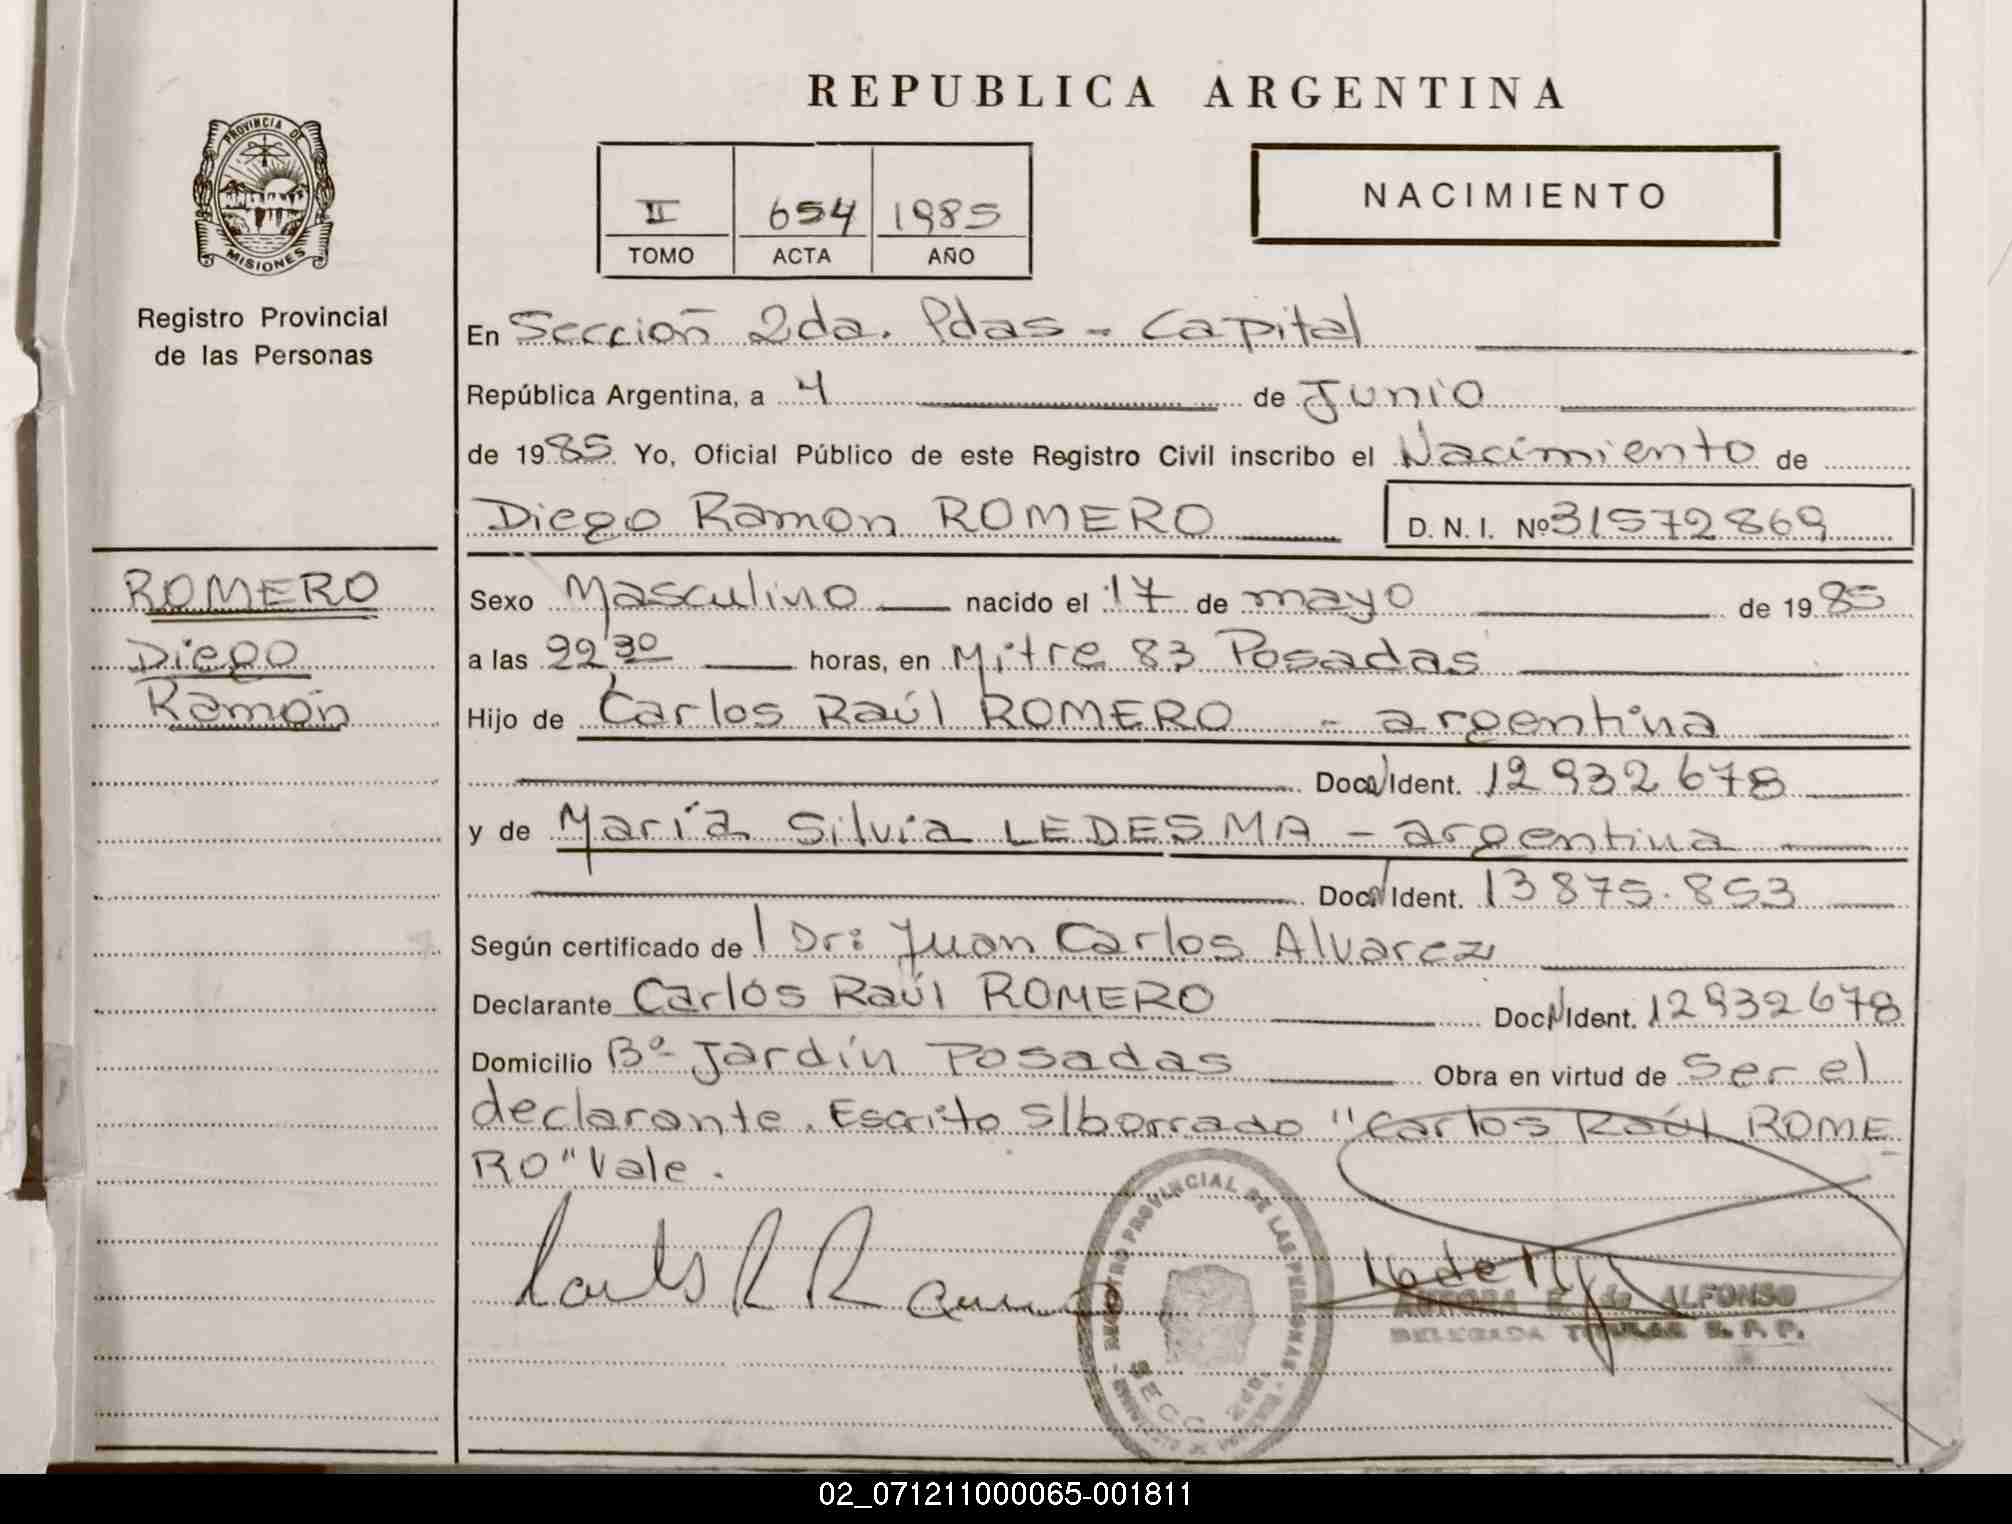 REPUBLICA ARGENTINA
PROVINCIA DE
MISIONES
Registro Provincial
de las Personas
II 654 1985
TOMO ACTA AÑO
NACIMIENTO
En Sección 2da. Pdas - Capital
República Argentina, a 4 de Junio
de 1985 Yo, Oficial Público de este Registro Civil inscribo el Nacimiento de
Diego Ramon ROMERO D. N. I. Nº 31572869
ROMERO
Diego
Ramón
Sexo Masculino nacido el 17 de mayo de 1985
a las 22,30 horas, en Mitre 83 Posadas
Hijo de Carlos Raúl ROMERO - argentina
Doc. Ident. 12932678
y de María Silvia LEDESMA - argentina
Doc. Ident. 13875.853
Según certificado de l Dr: Juan Carlos Alvarez
Declarante Carlos Raúl ROMERO Doc. Ident. 12932678
Domicilio Bº Jardín Posadas Obra en virtud de ser el
declarante. Escrito S/borrado "Carlos Raúl ROME
RO" Vale.
REGISTRO PROVINCIAL DE LAS PERSONAS
SECC. 2da.
AURORA de ALFONSO
DELEGADA TITULAR R. P. P.
02_071211000065-001811